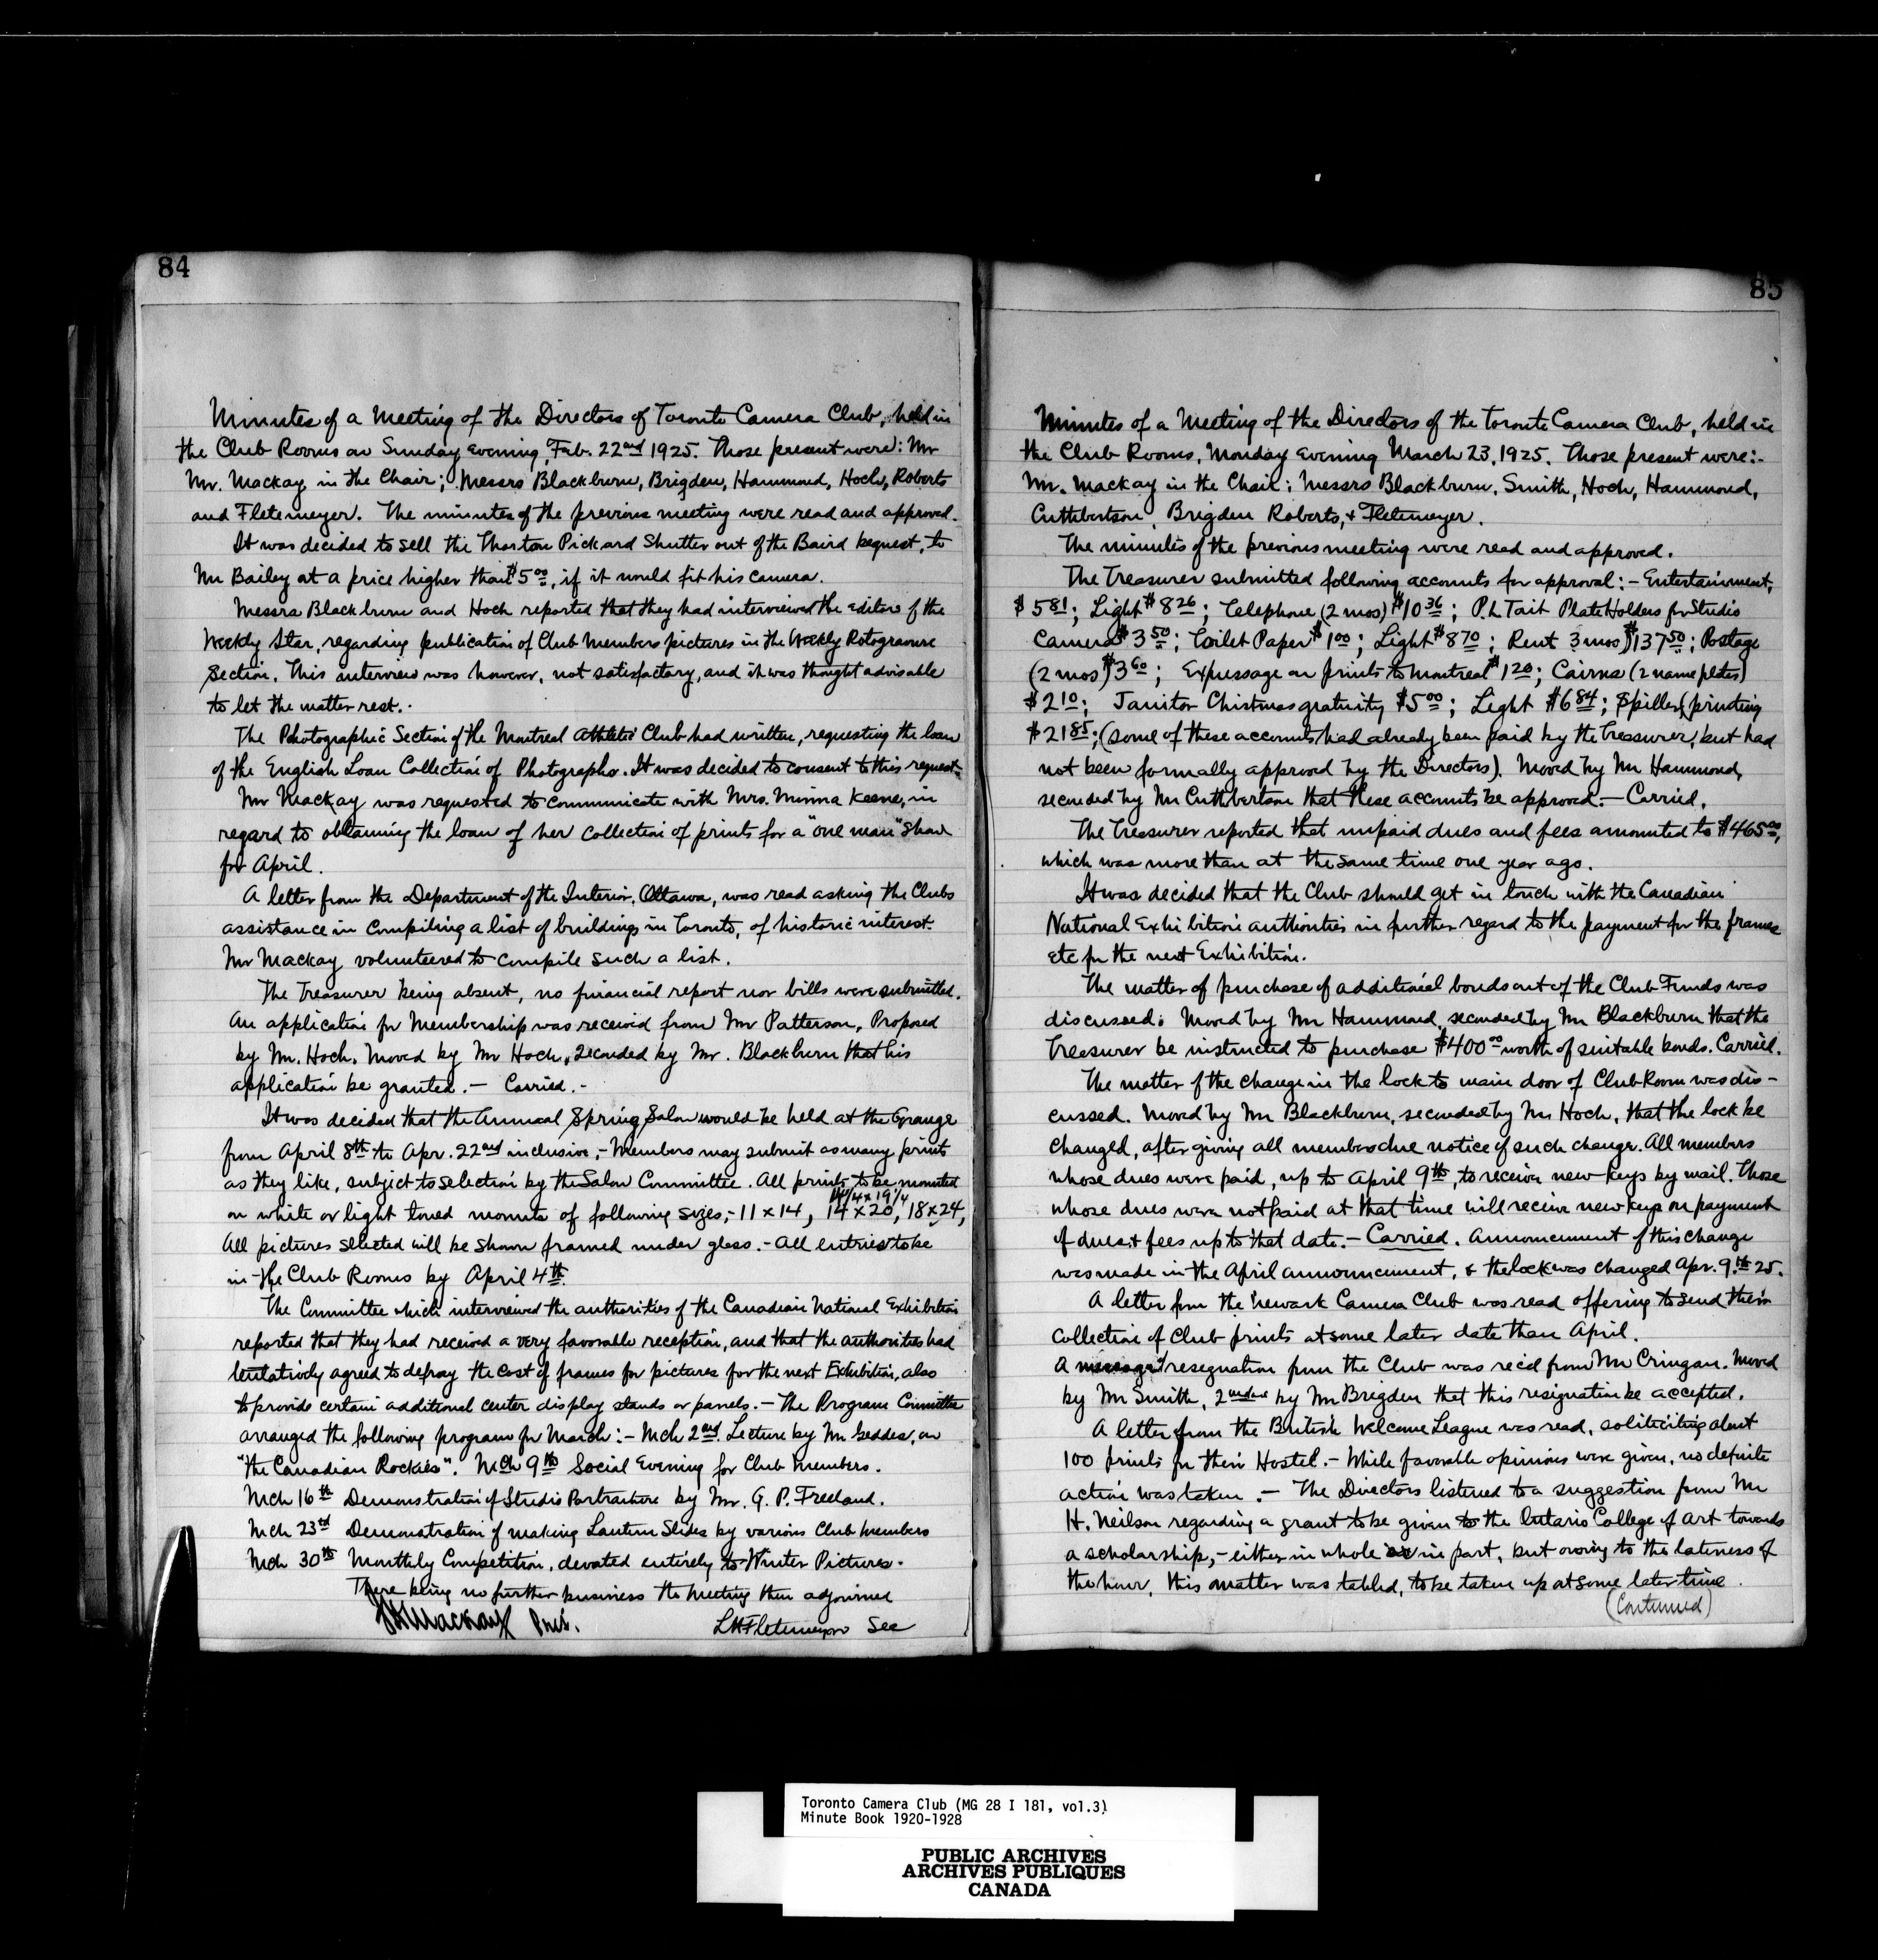 84
Minutes of a Meeting of the Directors of Toronto Camera Club, held in
the Club Rooms on Sunday evening, Feb. 22nd 1925. Those present were: Mr
Mr. Mackay in the Chair; Messrs Blackburn, Brigden, Hammond, Hoch, Roberts
and Fletemeyer. The minutes of the previous meeting were read and approved.
It was decided to sell the Thorton Pickard Shutter out of the Baird bequest, to
Mr Bailey at a price higher than $5.00, if it would fit his camera.
Messrs Blackburn and Hoch reported that they had interviewed the editor of the
Weekly Star, regarding publication of Club Members pictures in the Weekly Rotogravure
Section. This interview was however, not satisfactory, and it was thought advisable
to let the matter rest.
The Photographic Section of the Montreal Athletic Club had written, requesting the loan
of the English Loan Collection of Photographs. It was decided to consent to this request.
Mr Mackay was requested to communicate with Mrs. Minna Keene, in
regard to obtaining the loan of her collection of prints for a "one man" show
for April.
A letter from the Department of the Interior, Ottawa, was read asking the Clubs
assistance in compiling a list of buildings in Toronto, of historic interest.
Mr Mackay volunteered to compile such a list.
The Treasurer being absent, no financial report nor bills were submitted.
An application for Membership was received from Mr Patterson, Proposed
by Mr. Hoch. Moved by Mr Hoch, seconded by Mr. Blackburn that his
application be granted. — Carried. -
It was decided that the Annual Spring Salon would be held at the Grange
from April 8th to Apr. 22nd inclusive, - Members may submit as many prints
as they like, subject to selection by the Salon Committee. All prints to be mounted
14 1/4 x 19 1/4
on white or light toned mounts of following sizes, - 11 x 14, 14 x 20, 18 x 24,
All pictures selected will be shown framed under glass. - All entries to be
in the Club Rooms by April 4th.
The Committee which interviewed the authorities of the Canadian National Exhibition
reported that they had received a very favorable reception, and that the authorities had
tentatively agreed to defray the cost of frames for pictures for the next Exhibition, also
to provide certain additional center display stands or panels. — The Program Committee
arranged the following program for March: - Mch 2nd. Lecture by Mr Geddes, on
"The Canadian Rockies". Mch 9th Social Evening for Club Members.
Mch 16th Demonstration of Studio Portraiture by Mr. G. P. Freeland.
Mch 23rd Demonstration of making Lantern Slides by various Club Members
Mch 30th Monthly Competition, devoted entirely to Winter Pictures.
There being no further business the meeting then adjourned
Mackay Pres. L H Fletemeyer Sec
85
Minutes of a Meeting of the Directors of the Toronto Camera Club, held in
the Club Rooms, Monday Evening March 23, 1925. Those present were: -
Mr. Mackay in the Chair; Messrs Blackburn, Smith, Hoch, Hammond,
Cuthbertson, Brigden Roberts, & Fletemeyer.
The minutes of the previous meeting were read and approved.
The Treasurer submitted following accounts for approval: - Entertainment,
$5.81; Light $8.26; Telephone (2 mos) $10.36; P.L Tait Plate Holders for Studio
Camera $3.50; Toilet Paper $1.00; Light $8.70; Rent 3 mos) $137.50; Postage
(2 mos) $3.60; Expressage on prints to Montreal $1.20; Cairns (2 name plates)
$2.10; Janitor Chistmas gratuity $5.00; Light $6.84; Spillers (printing
$21.85; (some of these accounts had already been paid by the Treasurer, but had
not been formally approved by the Directors). Moved by Mr Hammond,
seconded by Mr Cuthbertson that these accounts be approved. — Carried.
The Treasurer reported that unpaid dues and fees amounted to $465.00,
which was more than at the same time one year ago.
It was decided that the Club should get in touch with the Canadian
National Exhibition authorities in further regard to the payment for the frames
etc for the next Exhibition.
The matter of purchase of additional bonds out of the Club Funds was
discussed. Moved by Mr Hammond, seconded by Mr Blackburn that the
Treasurer be instructed to purchase $400.00 worth of suitable bonds. Carried.
The matter of the change in the lock to main door of Club Room was dis-
cussed. Moved by Mr Blackburn, seconded by Mr Hoch, that the lock be
changed, after giving all members due notice of such change. All members
whose dues were paid, up to April 9th, to receive new keys by mail. Those
whose dues were not paid at that time will receive new keys on payment
of dues & fees up to that date. — Carried. Announcement of this change
was made in the April announcement, & the lock was changed Apr. 9.th 25.
A letter from the Newark Camera Club was read offering to send their
collection of Club prints at some later date than April.
A resegnation from the Club was rec'd from Mr Cringan. Moved
by Mr Smith, 2nded by Mr Brigden that this resignation be accepted.
A letter from the British Welcome League was read, soliciting about
100 prints for their Hostel. - While favorable opinions were given, no definite
action was taken. — The Directors listened to a suggestion from Mr
H. Neilson regarding a grant to be given to the Ontario College of Art towards
a scholarship, - either in whole or in part, but owing to the lateness of
the hour, this matter was tabled, to be taken up at some later time.
(Continued)
Toronto Camera Club (MG 28 I 181, vol.3)
Minute Book 1920-1928
PUBLIC ARCHIVES
ARCHIVES PUBLIQUES
CANADA